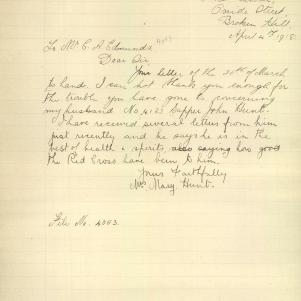 Oxide Street,
Broken Hill
April 4th 1918.
To Mr C. A. Edmunds 4053
Dear Sir,
Your letter of the 30th of March
to hand. I can not thank you enough for
the trouble you have gone to concerning
my husband No. 4125 Sapper John Hunt.
I have received several letters from him
just recently and he says he is in the
best of health & spirits, also saying how good
the Red Cross have been to him.
Yours Faithfully
Mrs Mary Hunt.
File No. 4053.